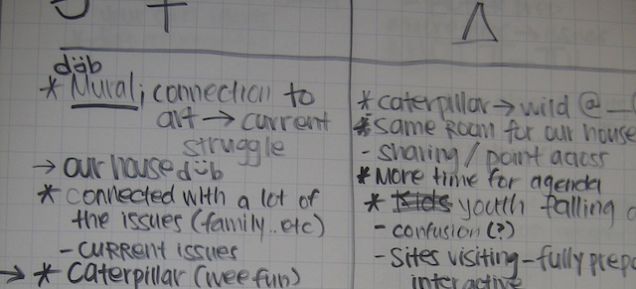 +
Δ
düb
* Mural; connection to
art → current
struggle
→ our house düb
* connected with a lot of
the issues (family..etc)
- current issues
→ * caterpillar (wee fun)
* caterpillar → wild @
* same room for our house
- sharing / point across
* More time for agenda
* youth falling
- confusion (?)
- Sites visiting - fully
interactive